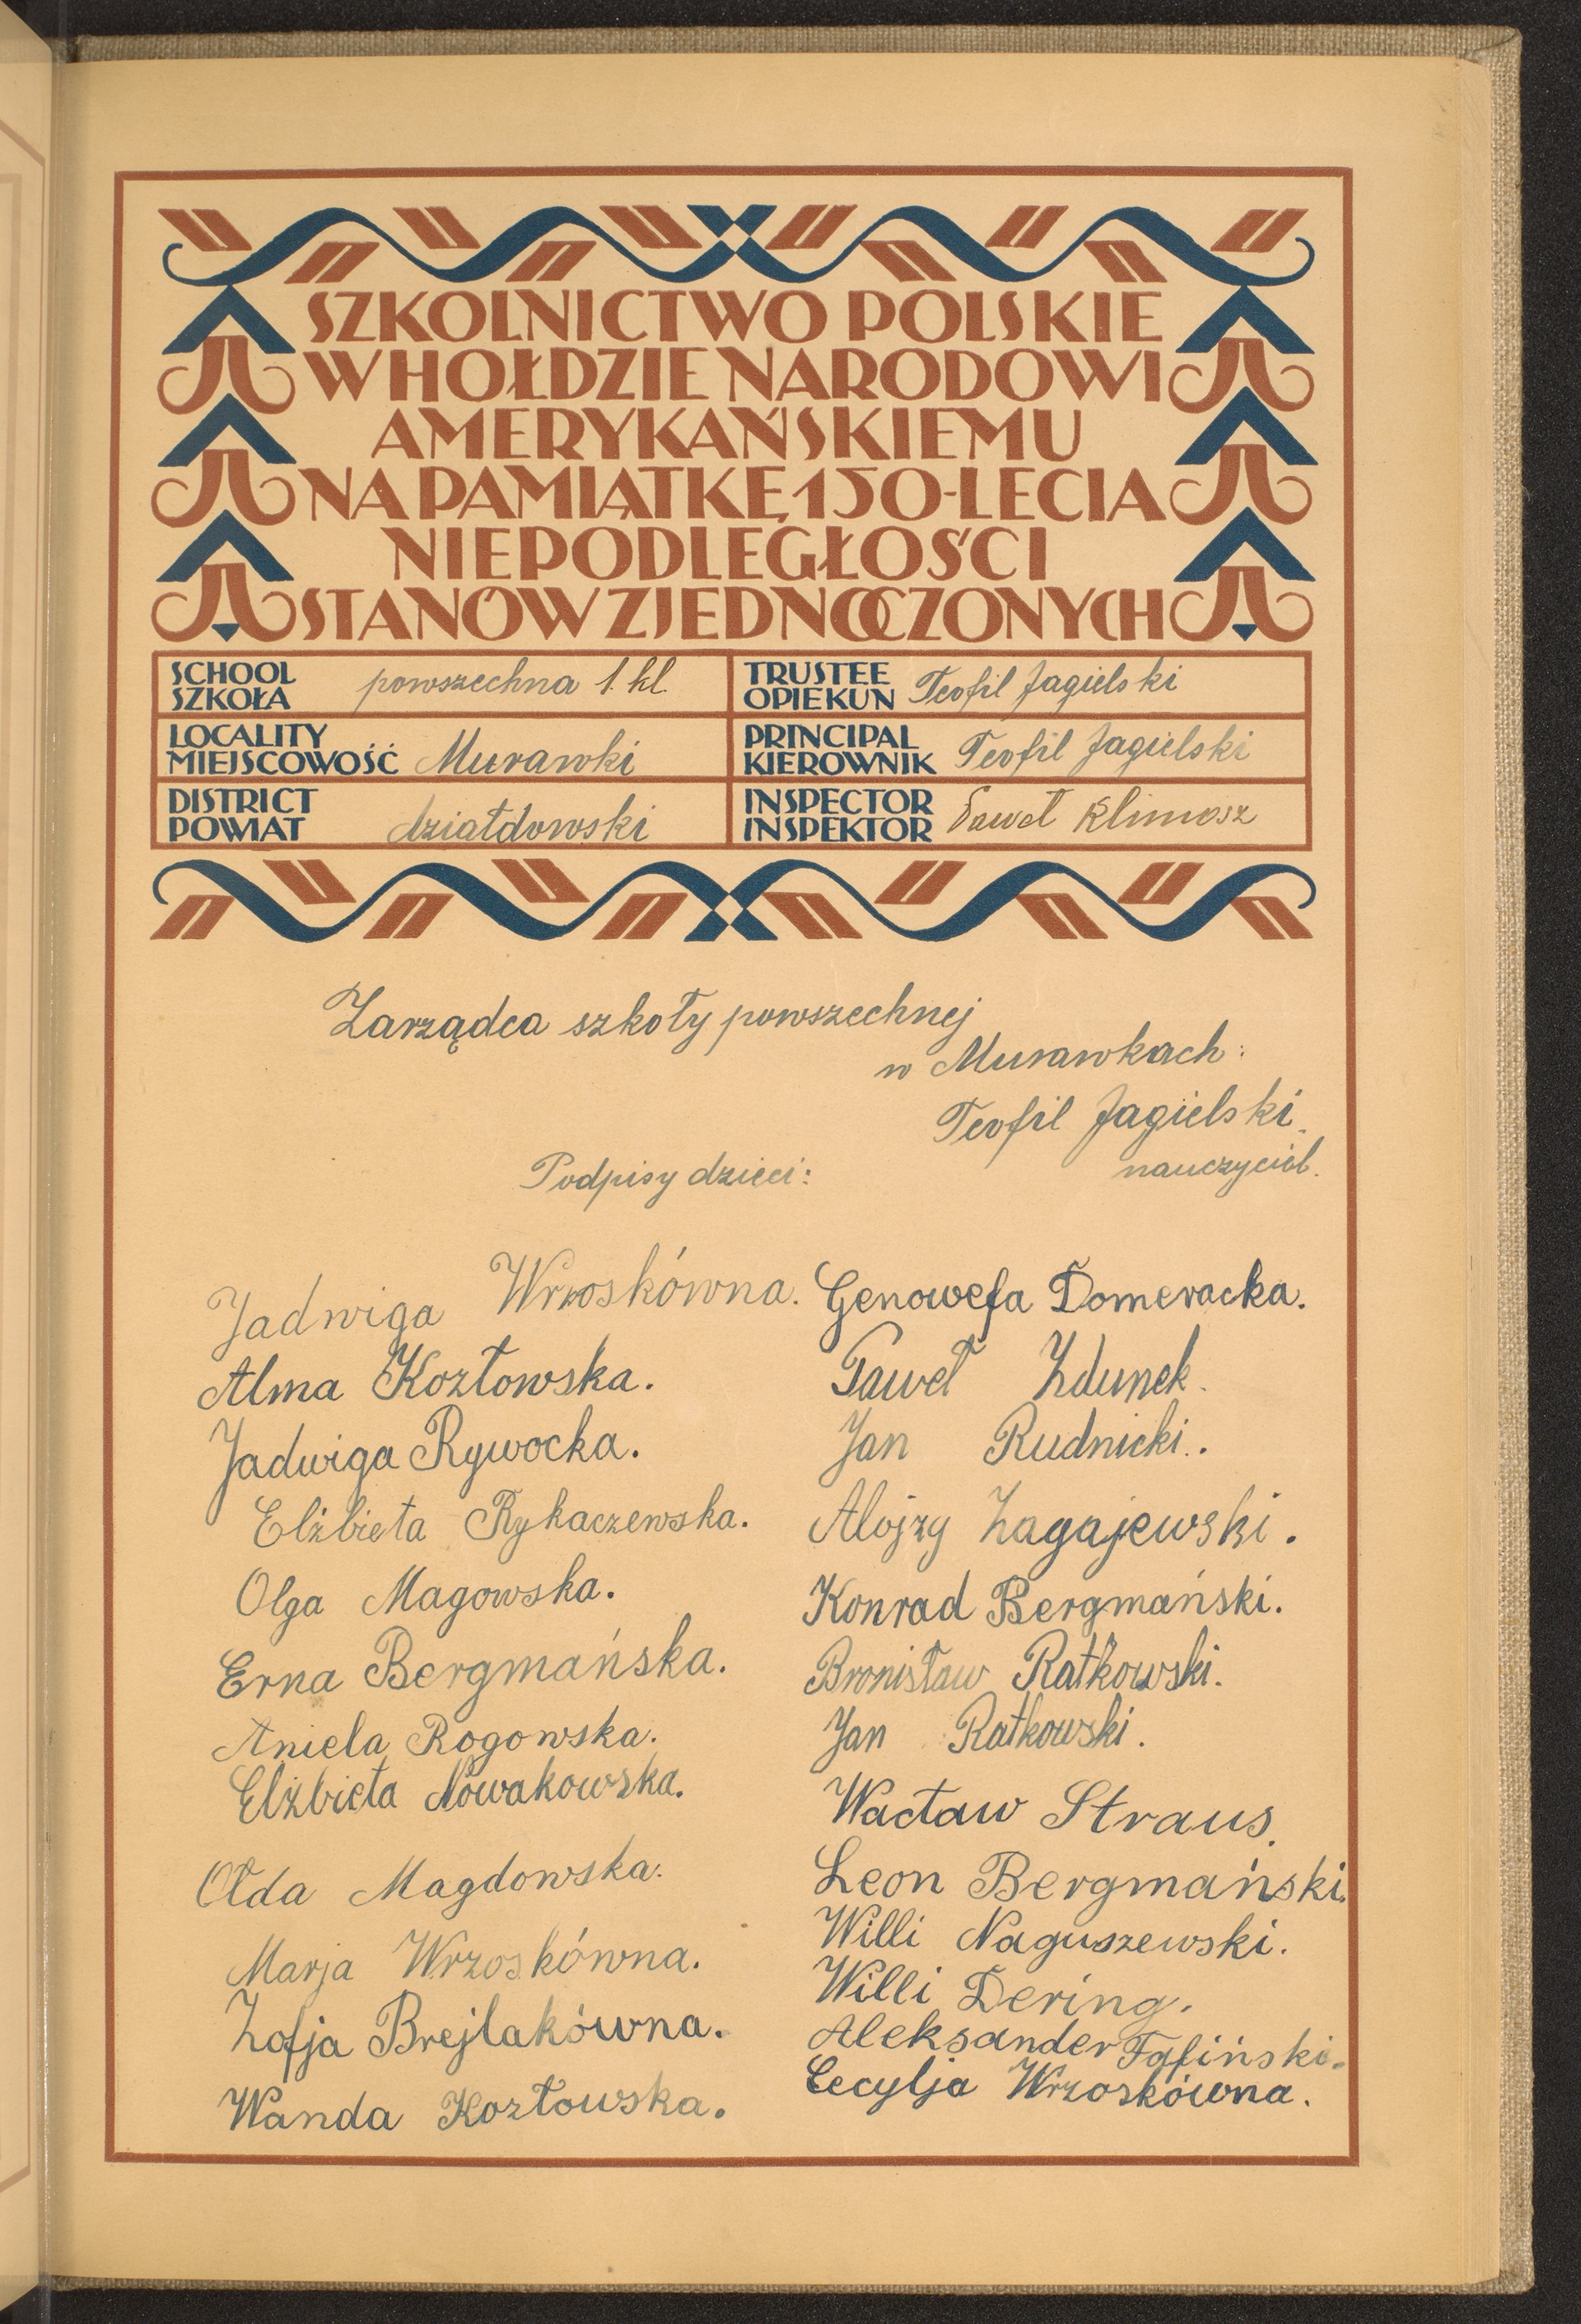 SZKOLNICTWO POLSKIE
W HOŁDZIE NARODOWI
AMERYKAŃSKIEMU
NA PAMIĄTKĘ 150-LECIA
NIEPODLEGŁOŚCI
STANÓW ZJEDNOCZONYCH
SCHOOL
SZKOŁA powszechna 1. kl.
TRUSTEE
OPIEKUN Teofil Jagielski
LOCALITY
MIEJSCOWOŚĆ Murawki
PRINCIPAL
KIEROWNIK Teofil Jagielski
DISTRICT
POWIAT działdowski
INSPECTOR
INSPEKTOR Paweł Klimosz
Zarządca szkoły powszechnej
w Murawkach:
Teofil Jagielski
nauczyciel.
Podpisy dzieci:
Jadwiga Wrzoskówna.
Alma Kozłowska.
Jadwiga Rywocka.
Elżbieta Rykaczewska.
Olga Magowska.
Erna Bergmańska.
Aniela Rogowska.
Elżbieta Nowakowska.
Ołda Magdowska.
Marja Wrzoskówna.
Zofja Brejlakówna.
Wanda Kozłowska.
Genowefa Domeracka.
Paweł Zdunek.
Jan Rudnicki.
Alojzy Zagajewski.
Konrad Bergmański.
Bronisław Ratkowski.
Jan Ratkowski.
Wacław Straus.
Leon Bergmański.
Willi Naguszewski.
Willi Dering.
Aleksander Fafiński.
Cecylja Wrzoskówna.